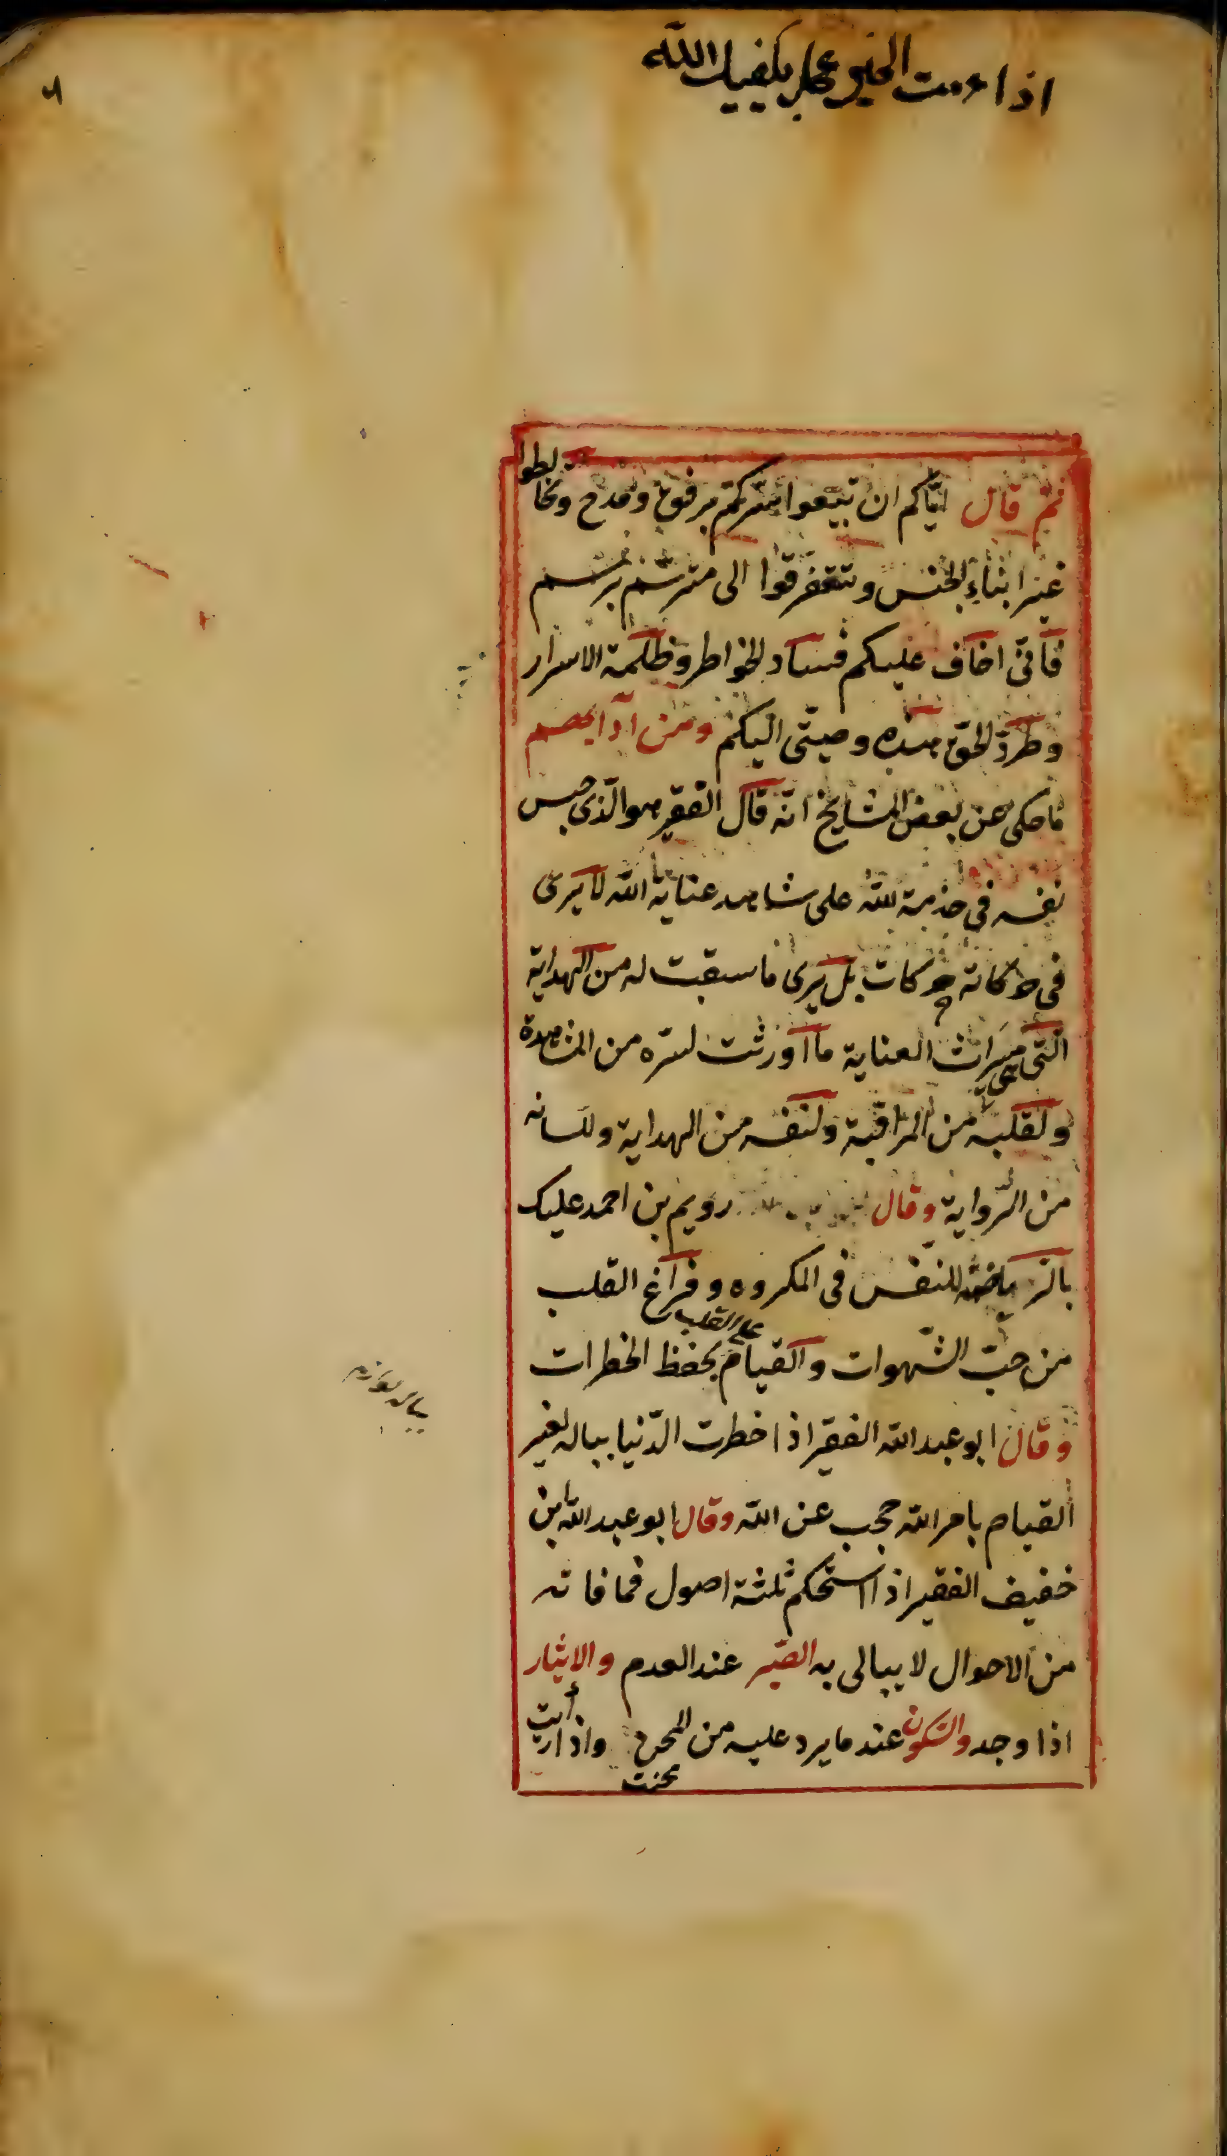 اذا الخير يكفيك الله
ثم قال ايّاكم ان تبيعوا سركم برفق وقدح وتخالطوا
غير ابناء الجنس وتتفرقوا الى مترسّم برسم
فانّى اخاف عليكم فساد الخواطر وظلمة الاسرار
وطرد الحقّ هذه وصيتى اليكم ومن آدابهم
ما حكى عن بعض المشايخ انه قال الفقير هو الّذى حبس
نفسه فى خدمة الله على مشاهدة عناية الله لا يرى
فى حركاته حركات بل يرى ما سبقت له من الهداية
التى هى ميراث العناية ما اورثت لسرّه من المشاهدة
ولقلبه من المراقبة ولنفسه من الهداية وللسانه
من الرّواية وقال رويم بن احمد عليك
بالرياضة للنّفس فى المكروه وفراغ القلب
من حبّ الشّهوات والقيام على القلب بحفظ الخطرات
وقال ابو عبد الله الفقير اذا خطرت الدّنيا بباله لغير
القيام بامر الله حجب عن الله وقال ابو عبد الله بن
خفيف الفقير اذا استحكم ثلثة اصول فما فاته
من الاحوال لا يبالى به الصّبر عند العدم والايثار
اذا وجد والسّكون عند ما يرد عليه من واذا رأيت
محنت